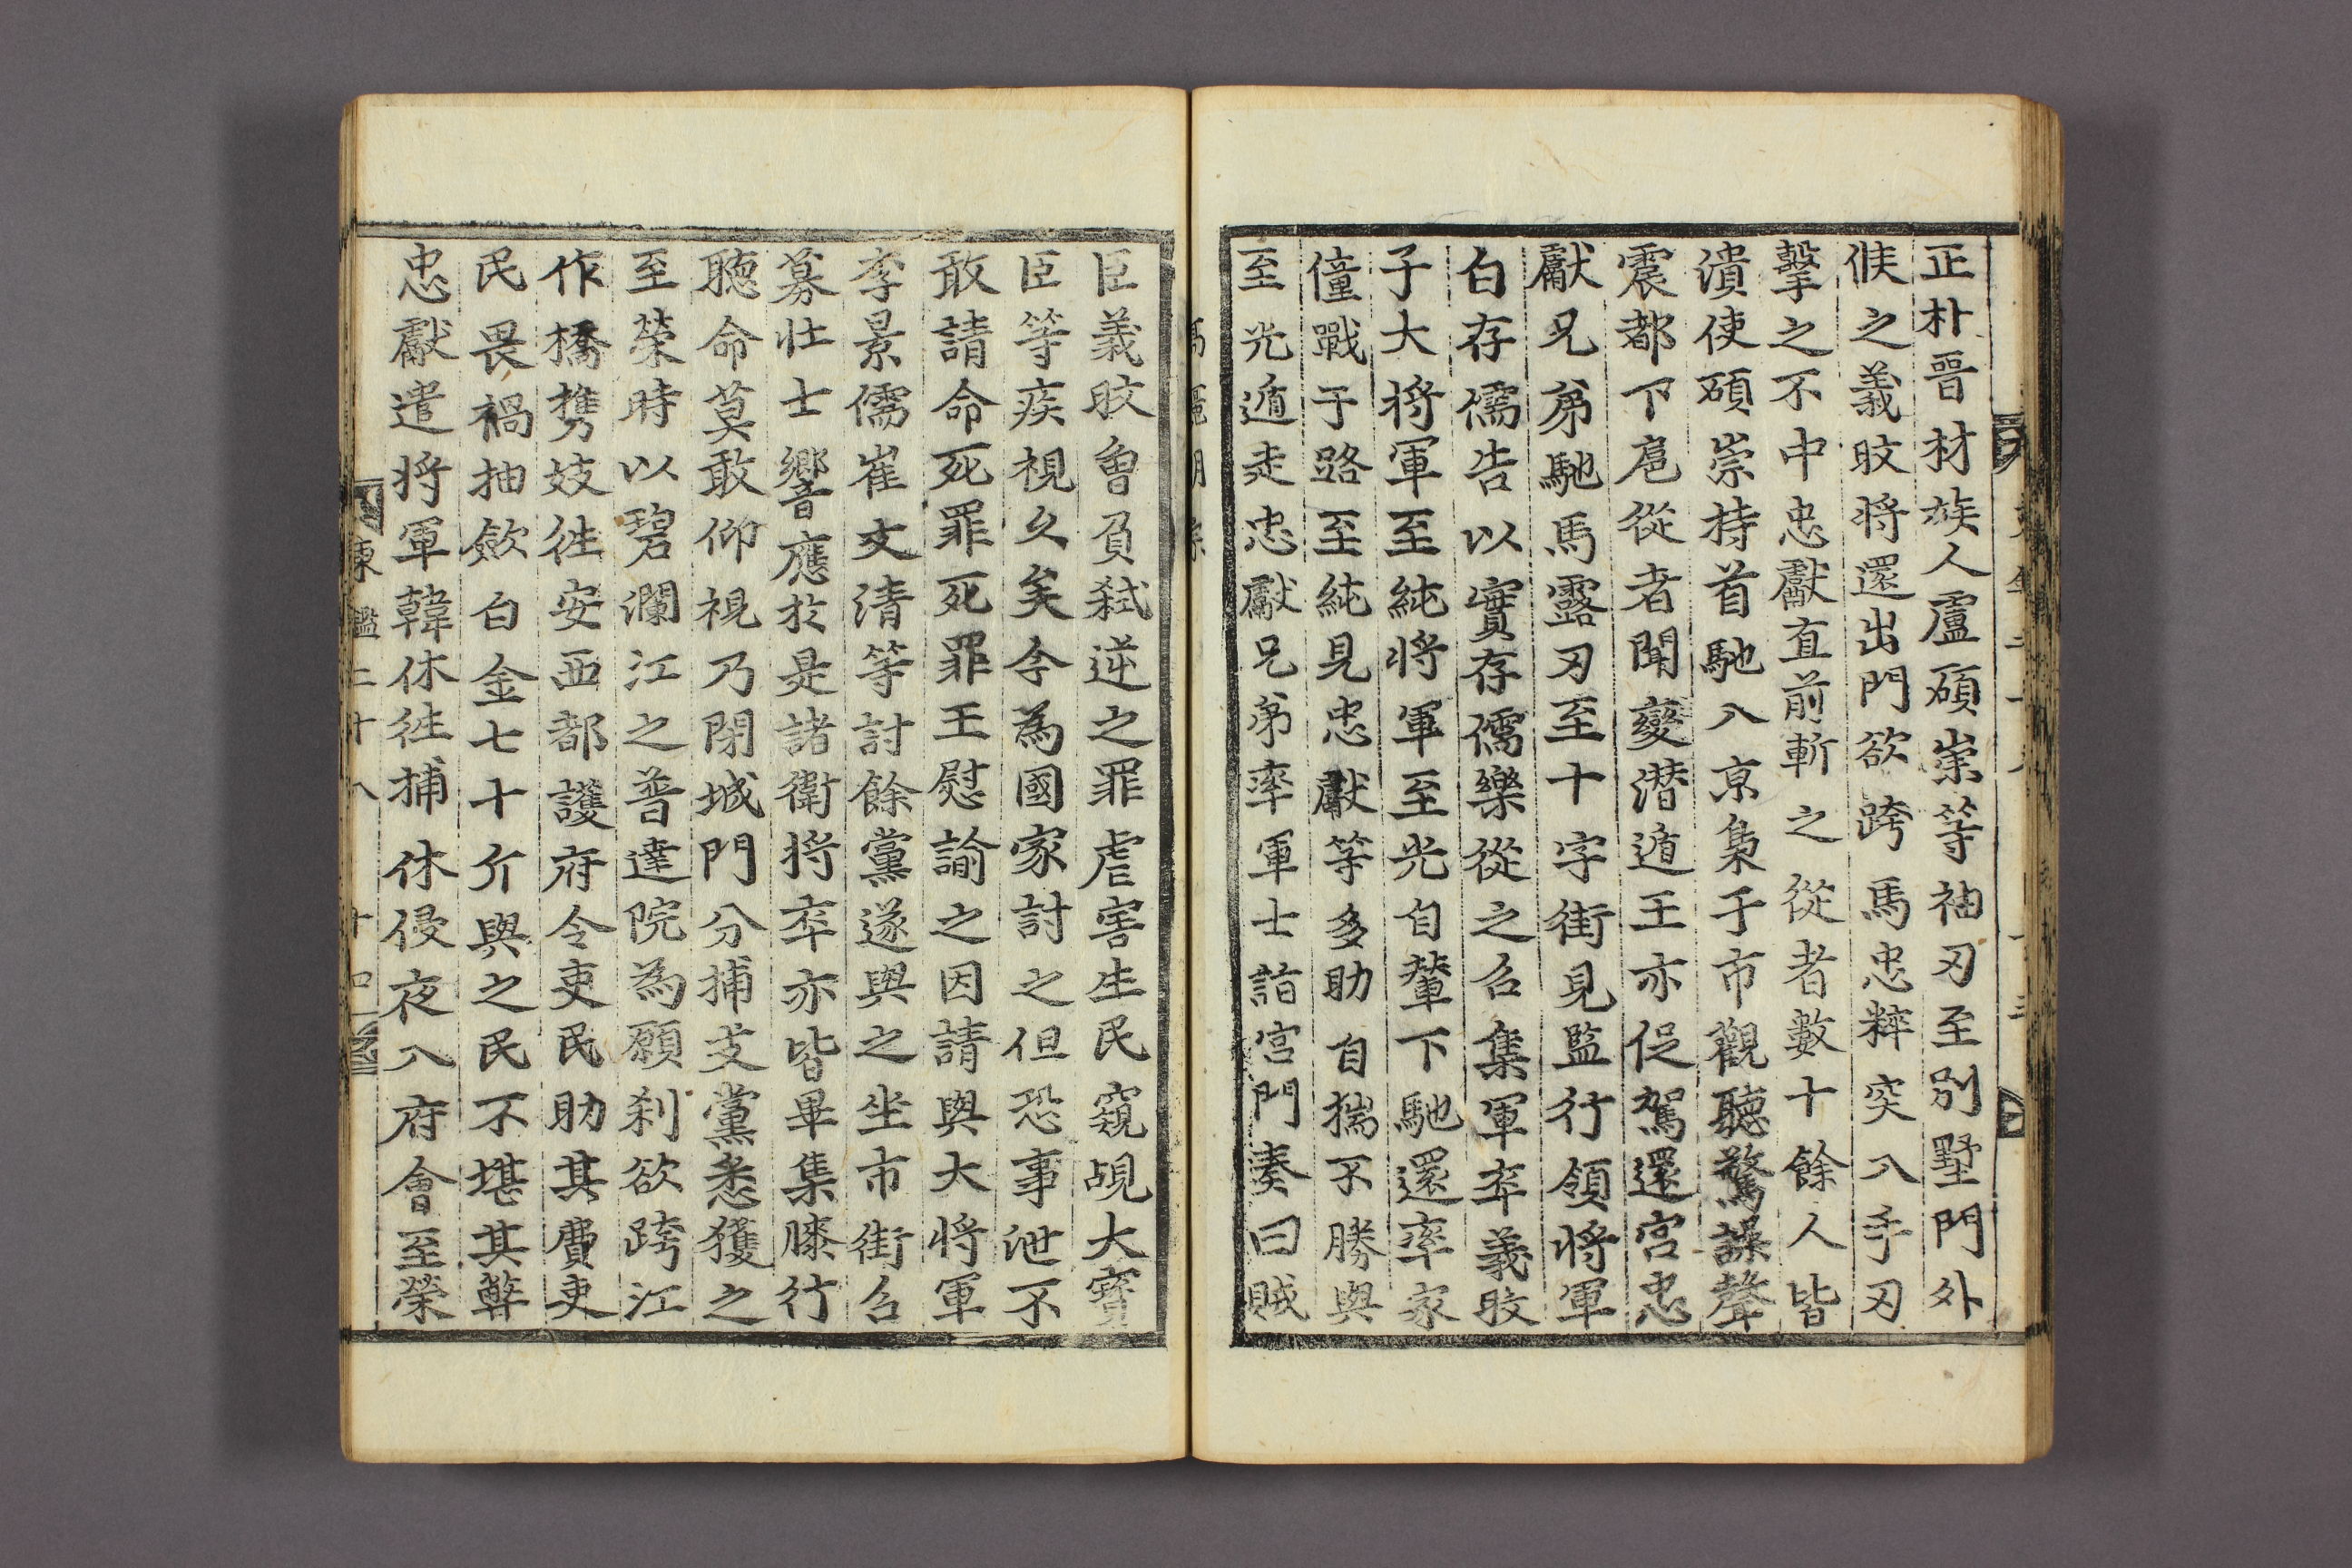 正朴晋材族人盧碩崇等袖刃至別墅門外
候之義旼將還出門欲跨馬忠粹突入手刃
擊之不中忠獻直前斬之從者數十餘人皆
潰使碩崇持首馳入京梟于市觀聽驚譟聲
震都下扈從者聞變潜遁王亦促駕還宮忠
獻兄弟馳馬露刃至十字街見監行領將軍
白存儒告以實存儒樂從之召集軍卒義旼
子大將軍至純將軍至光自輦下馳還率家
僮戰于路至純見忠獻等多助自揣不勝與
至光遁走忠獻兄弟率軍士詣宮門奏曰賊
臣義旼曾負弑逆之罪虐害生民窺覘大寶
臣等疾視久矣今為國家討之但恐事泄不
敢請命死罪死罪王慰諭之因請與大將軍
李景儒崔文清等討餘黨遂與之坐市街召
募壮士響應於是諸衛將卒亦皆畢集膝行
聽命莫敢仰視乃閉城門分捕支黨悉獲之
至榮時以碧瀾江之普達院為願刹欲跨江
作橋携妓徃安西都護府令吏民助其費吏
民畏禍抽歛白金七十斤與之民不堪其弊
忠獻遣將軍韓休徃捕休侵夜入府會至榮
東鑑二十八 十四